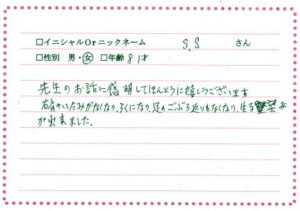 □イニシャルOrニックネーム S.S さん
□性別 男・女 □年齢 81才
先生のお話に感明してほんとうに嬉しうございます
右肩のいたみがなくなり、らくになり、足のこむら返りもなくなり、生きる望み
が出来ました。